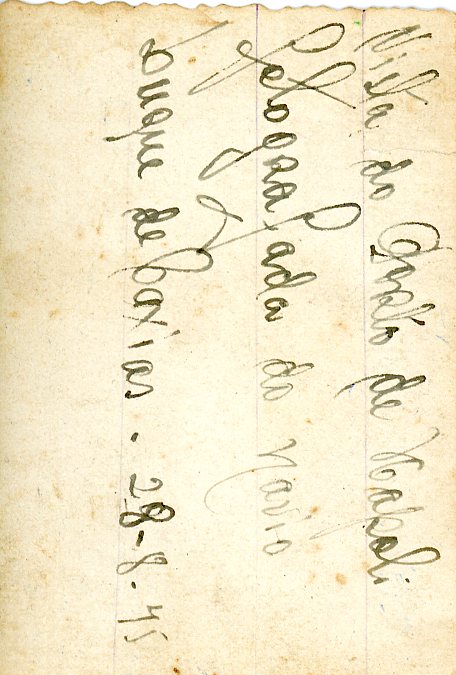 Vista do Porto de Napoli
fotografada do Navio
Duque de Caxias - 28-8-45